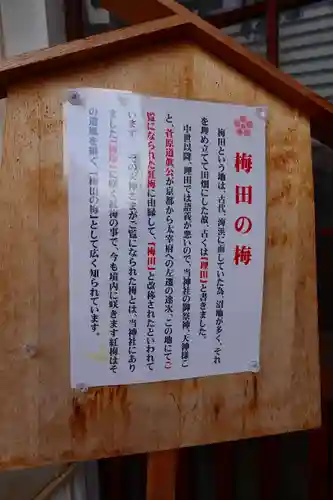 梅田の梅
梅田という地は、古代、海浜に面していた為、沼地が多く、それ
を埋め立てて田畑にした故、古くは【埋田】と書きました。
中世以降、埋田では語義が悪いので、当神社の御祭神、天神様こ
と、菅原道眞公が京都から太宰府への左遷の途次、この地にてご
覧になられた紅梅に由縁して、【梅田】と改称されたといわれて
います。その天神さまがご覧になられた梅とは、当神社にあり
ました【
】に咲く紅梅の事で、今も境内に咲きます紅梅はそ
の遺風を継ぐ、【梅田の梅】として広く知られています。